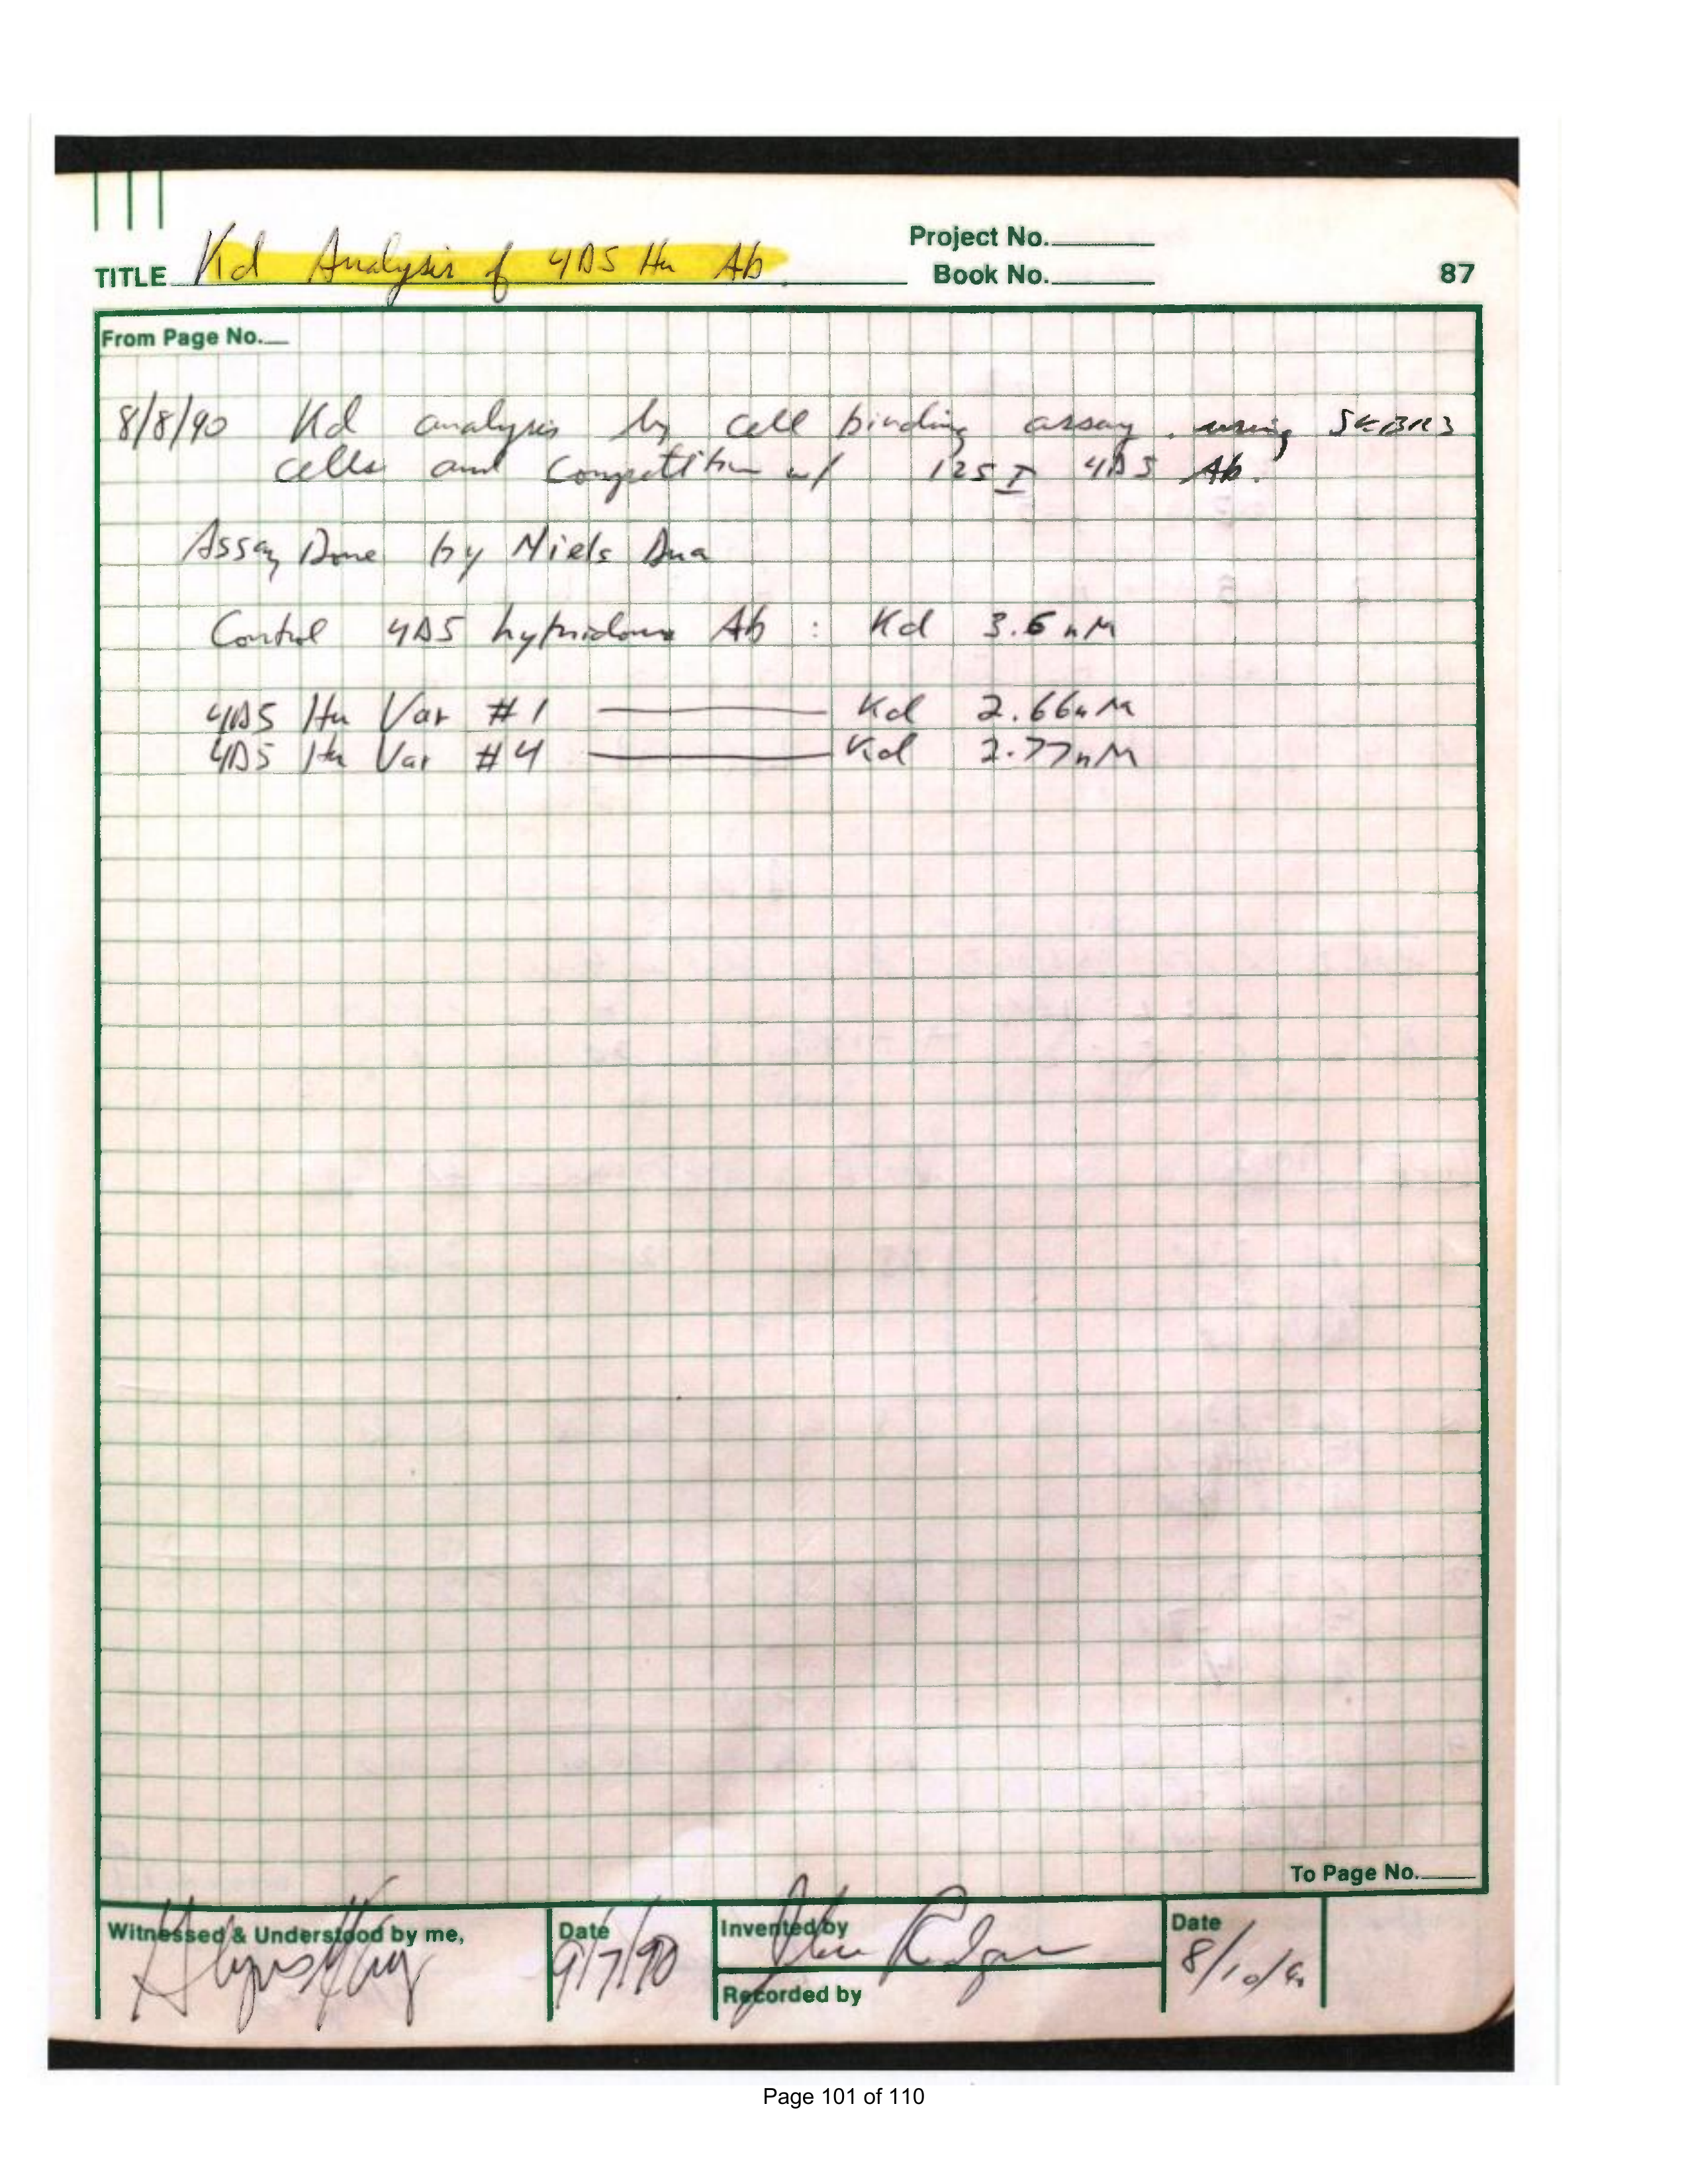 Project No.
TITLE Kd Analysis of 4D5 Hu Ab
Book No.
87
From Page No.
8/8/90 Kd analysis by cell binding assay using SKBR3
cells and competition w/ 125 I 4D5 Ab.
Assay Done by Niels
Control 4D5 hybridoma Ab : Kd 3.6 nM
4D5 Hu Var #1 Kd 2.66nM
4D5 Hu Var #4 Kd 2.77nM
To Page No.
Witnessed & Understood by me,
Date
9/7/90
Invented by
Recorded by
Date
8/10/90
Page 101 of 110